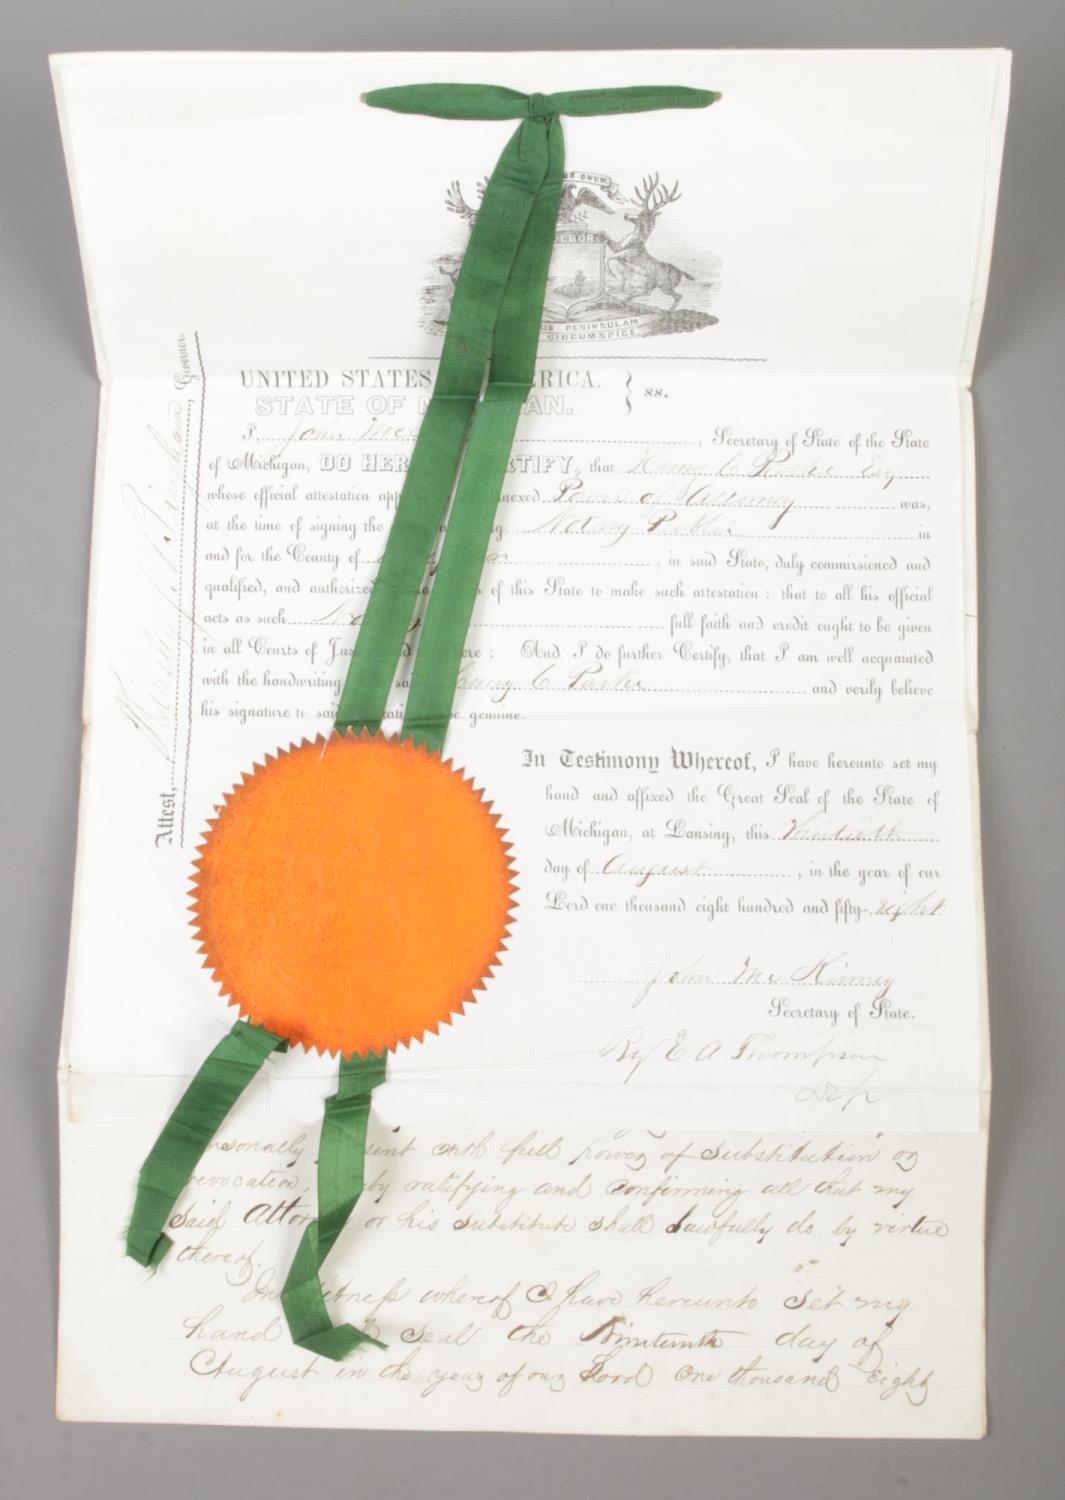 ONUM
DEBOR
PENINSULAM
CIRCUMSPICE.
UNITED STATES ERICA.
STATE OF M AN. } ss.
I, John Mc , Secretary of State of the State
of Michigan, DO HER TIFY, that Henry C Parker Esq
whose official attestation app nexed Power of Attorney was,
at the time of signing the g. Notary Public in
and for the County of , in said State, duly commissioned and
qualified, and authorized s of this State to make such attestation ; that to all his official
acts as such full faith and credit ought to be given
in all Courts of Jus re ; And I do further Certify, that I am well acquainted
with the handwriting sai Henry C Parker and verily believe
his signature to said be genuine.
In Testimony Whereof, I have hereunto set my
hand and affixed the Great Seal of the State of
Michigan, at Lansing, this Thirtieth
day of August , in the year of our
Lord one thousand eight hundred and fifty-eight
John McKinney
Secretary of State.
By E A Thompson
Dep
Attest, Kinsley S Bingham Governor.
rsonally sent with full power of substitution or
revocation, by ratifying and confirming all that my
said Attorney or his substitute shall lawfully do by virtue
thereof.
In itness whereof I have hereunto set my
hand Seal the Nineteenth day of
August in the year of our Lord One thousand Eight